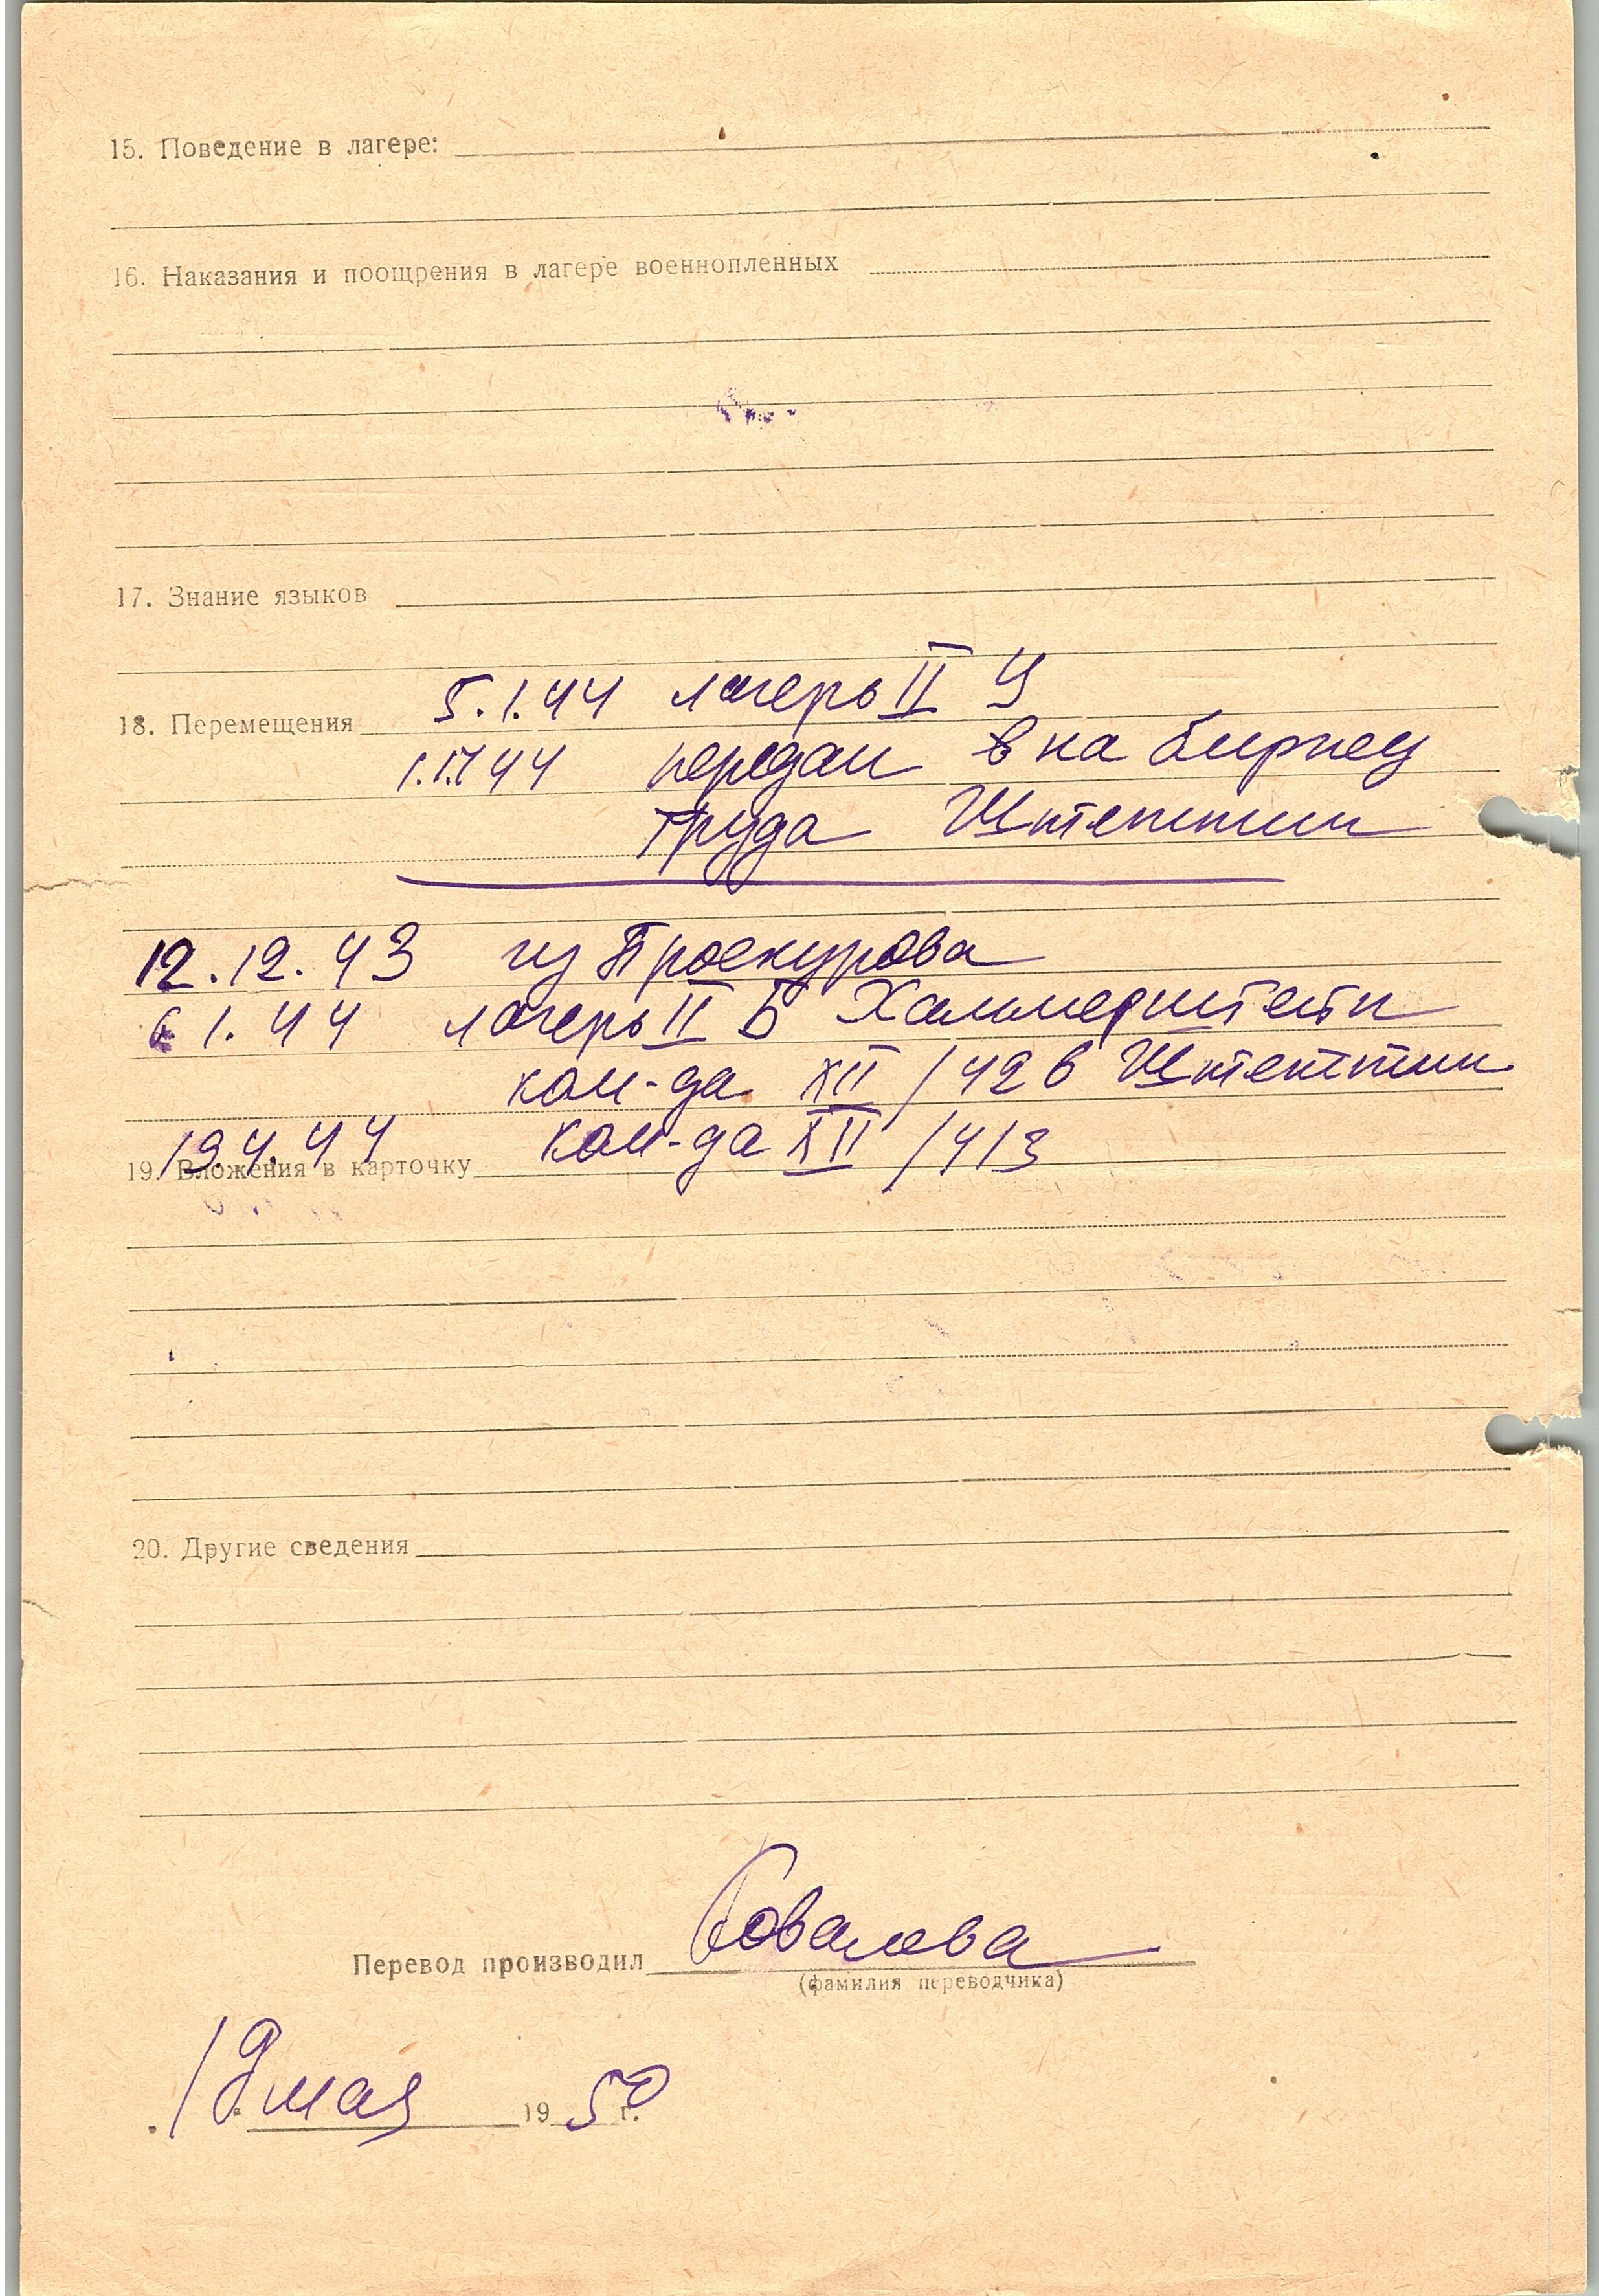 15. Поведение в лагере:
16. Наказания и поощрения в лагере военнопленных
17. Знание языков
18. Перемещения 5.1.44 лагерь II
44 передан на биржу
труда Штеттин
12.12.43 из Проскурова
1.44 лагерь II Б Хаммерштейн
ком-да XII/42 в Штеттин
19.4.44 ком-да XII/413
19. Вложения в карточку
20. Другие сведения
Перевод производил Ковалева
(фамилия переводчика)
19 мая 1950 г.